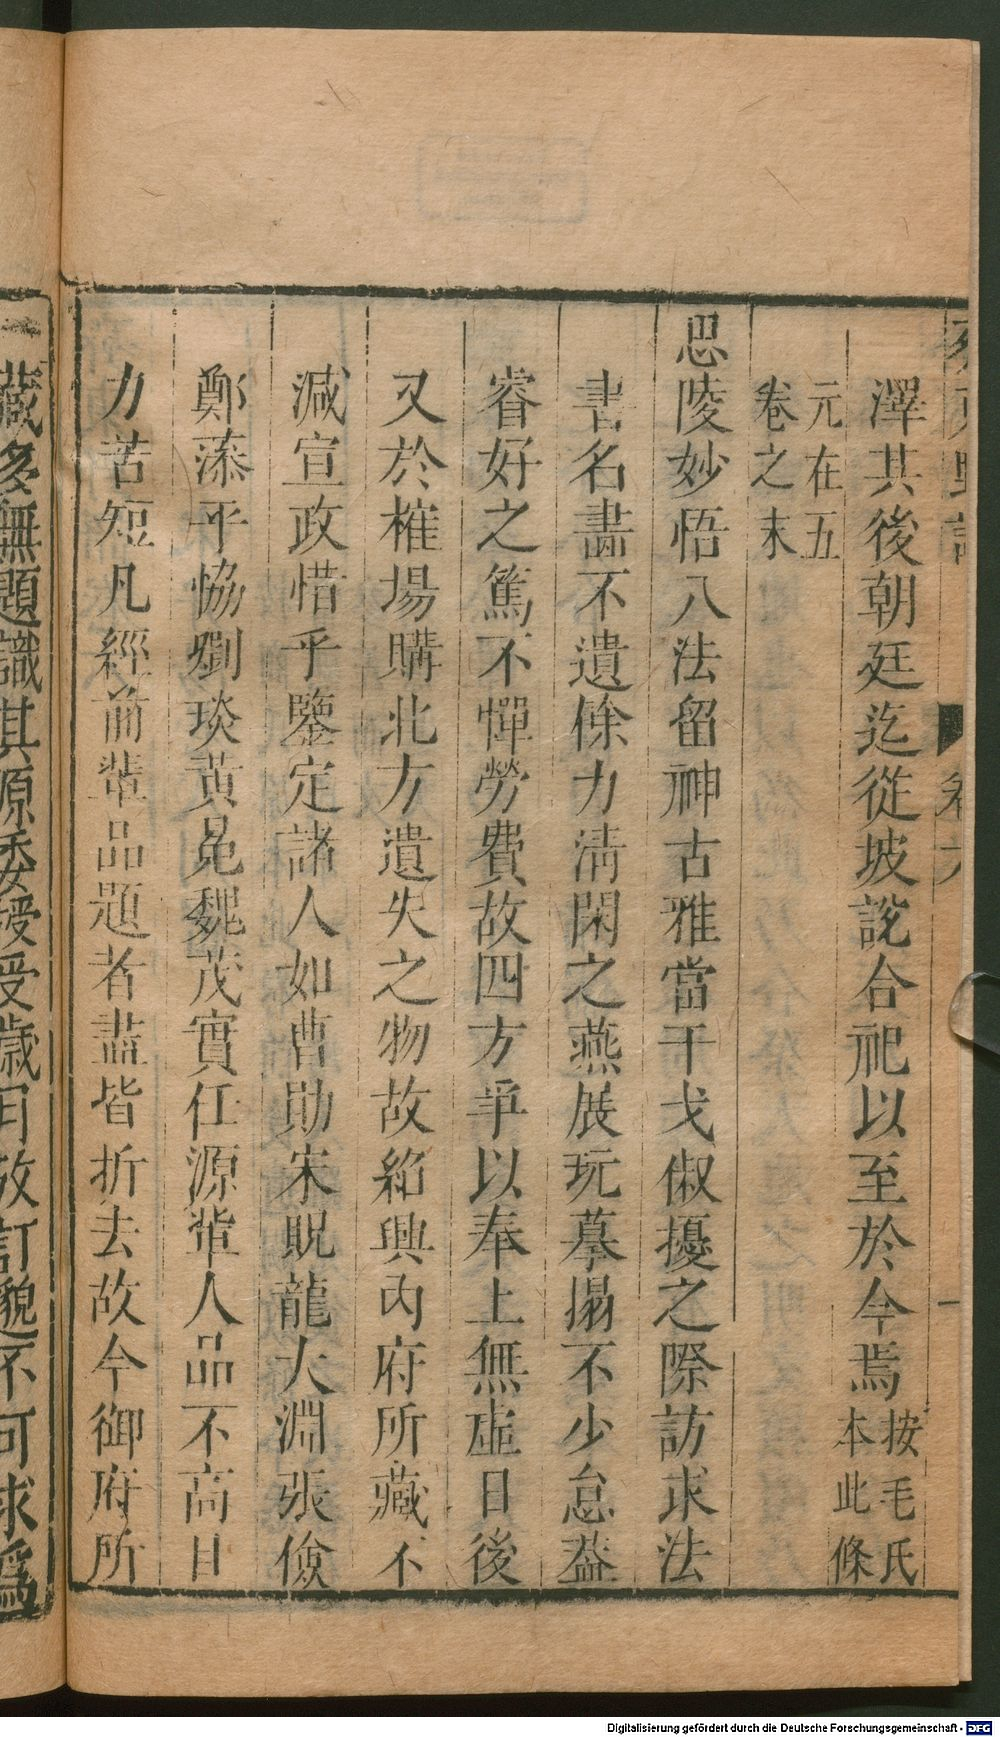 澤其後朝廷迄從坡說合祀以至於今焉按毛氏
本此條
元在五
卷之末
思陵妙悟八法留神古雅當干戈俶擾之際訪求法
書名畵不遺餘力淸閑之燕展玩摹搨不少怠葢
睿好之篤不憚勞費故四方爭以奉上無虛日後
又於榷場購北方遺失之物故紹興內府所藏不
減宣政惜乎鑒定諸人如曹勛宋貺龍大淵張儉
鄭藻平協劉琰黄冕魏茂實任源輩人品不高目
力苦短凡經前輩品題者盡皆折去故今御府所
藏多無題識其源委授受歲月攷訂邈不可求爲
卷六
一
Digitalisierung gefördert durch die Deutsche Forschungsgemeinschaft - DFG